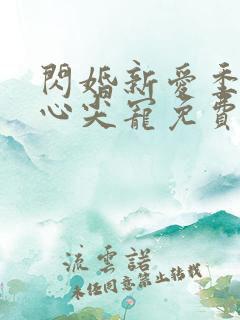 閃婚新愛季
心尖寵免費
流雲諾
未經同意禁止轉載